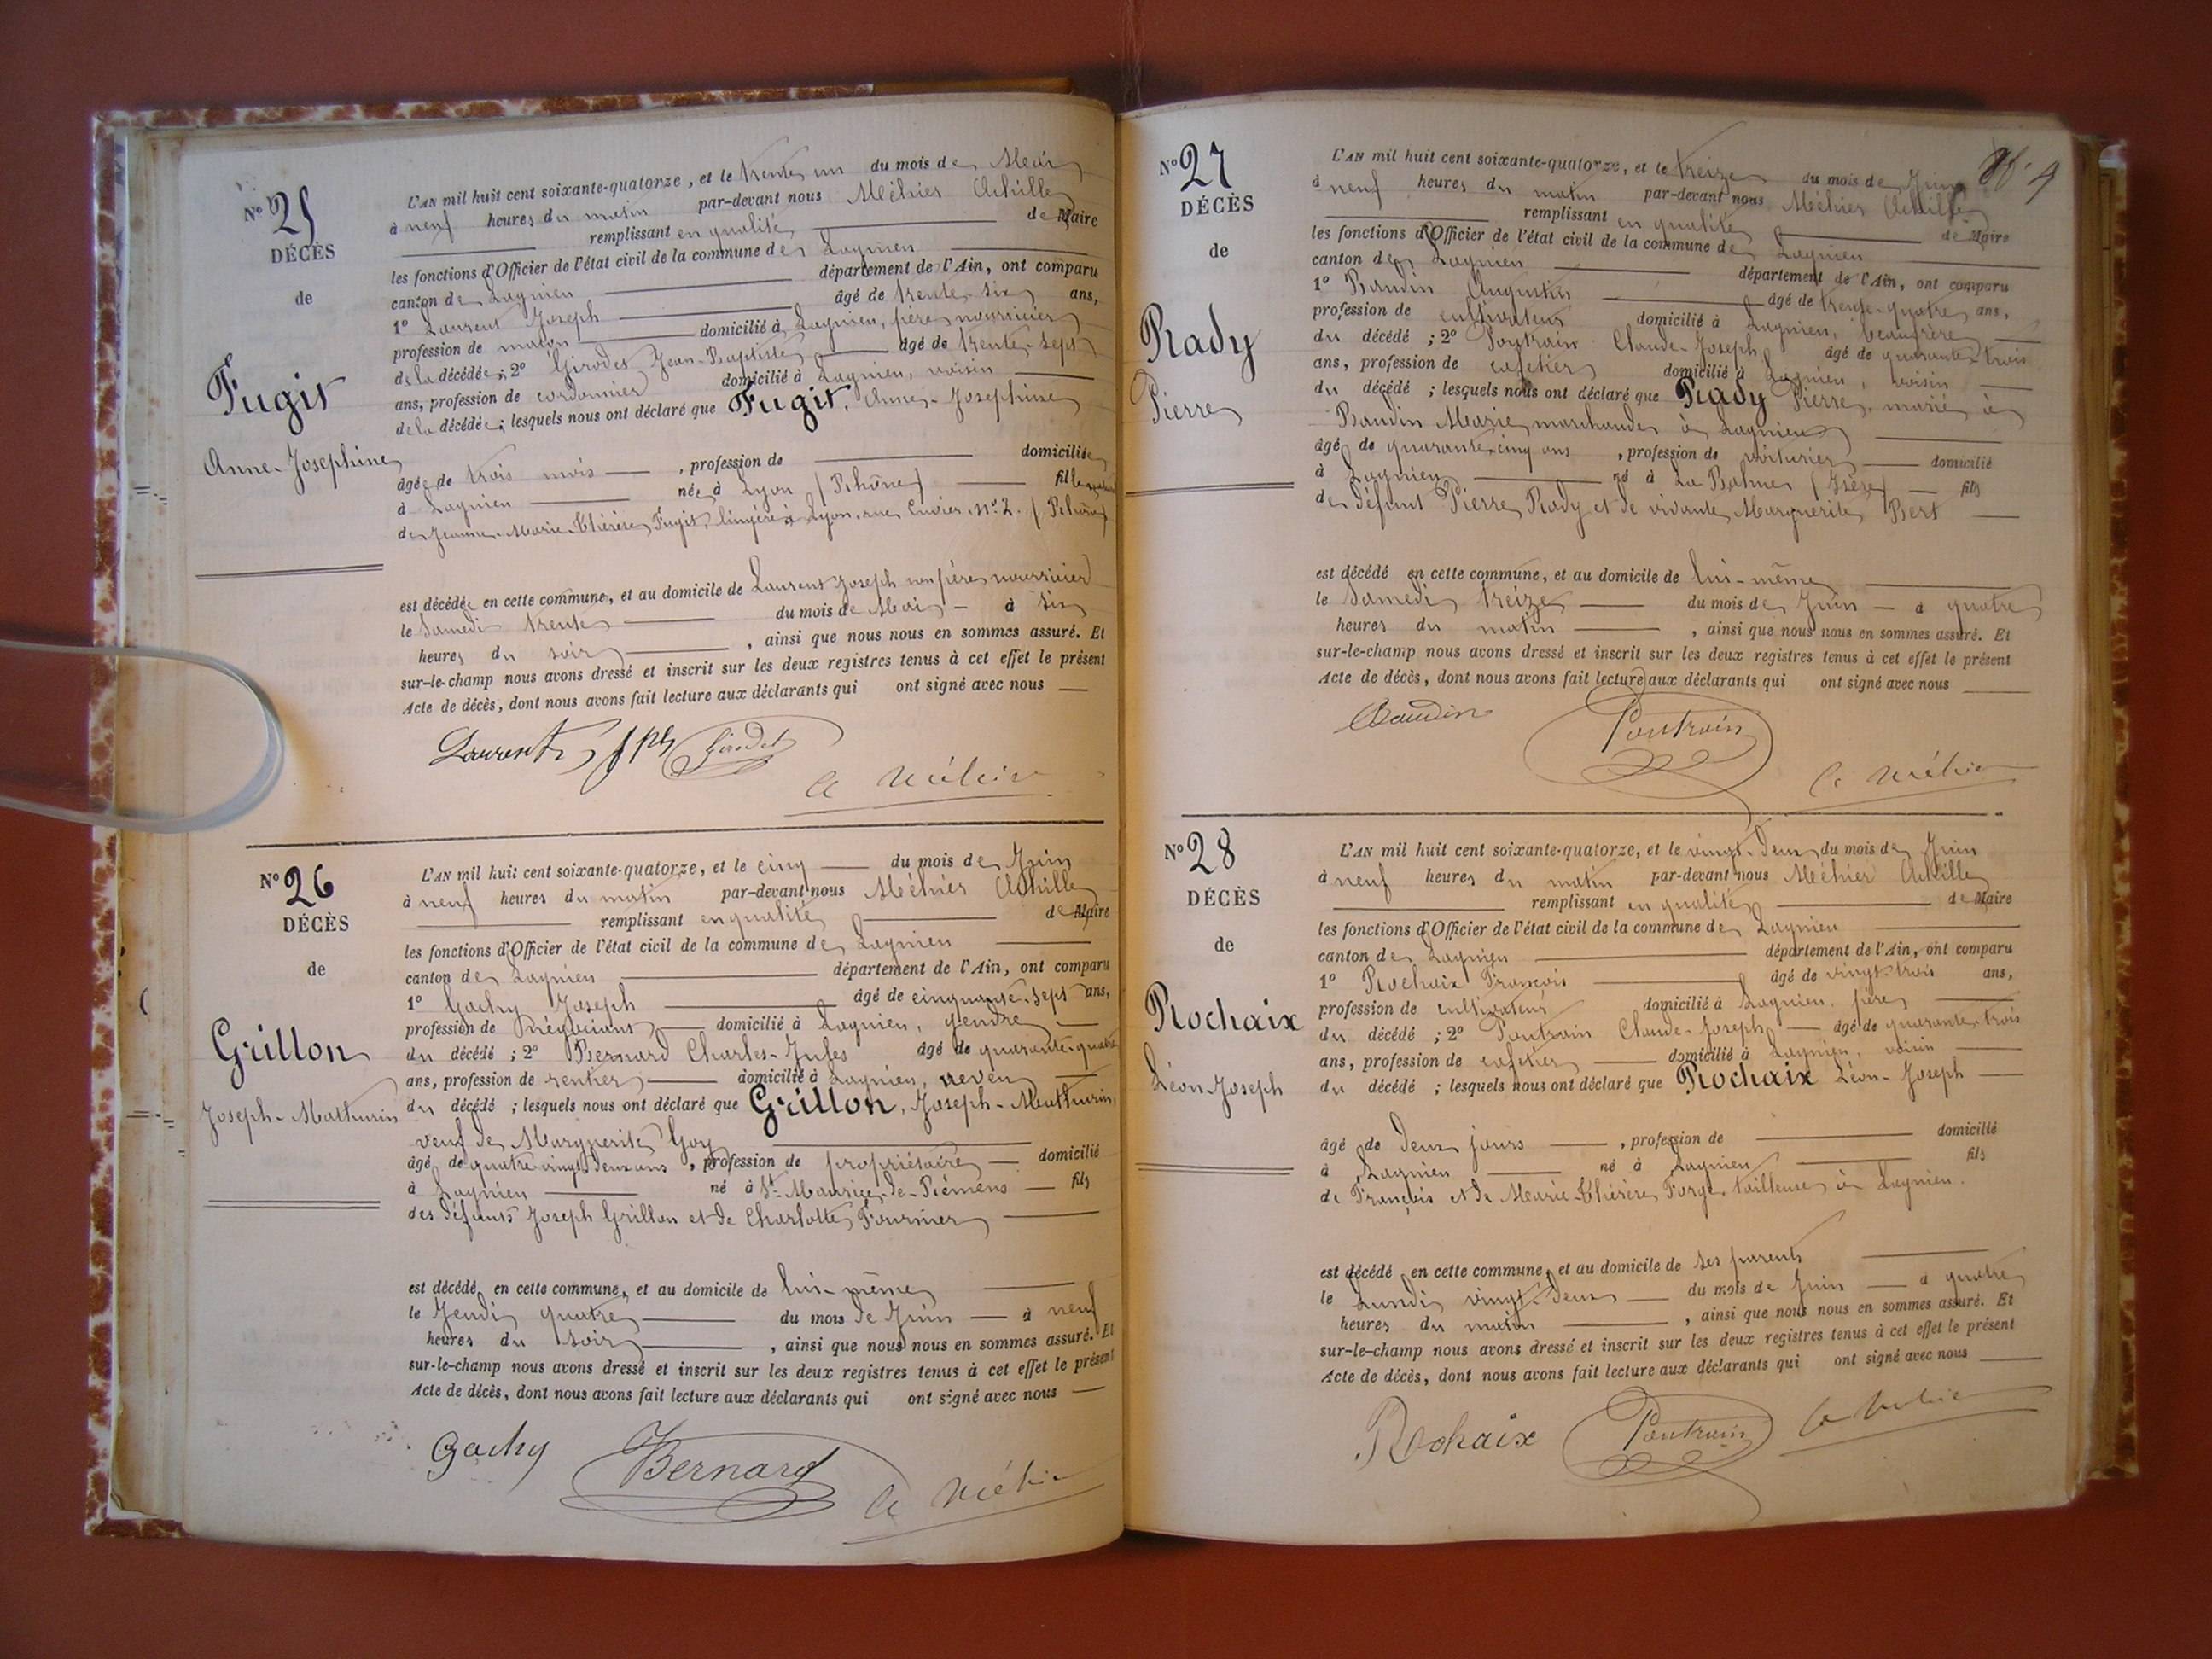 N° 25
DÉCÈS
de
Fugit
Anne-Josephine
L'AN mil huit cent soixante-quatorze, et le trente un du mois de Mai
à neuf heures du matin par-devant nous Méhier Achille
remplissant en qualité de Maire
les fonctions d'Officier de l'état civil de la commune de Lagnieu
canton de Lagnieu département de l'Ain, ont comparu
1° Laurent Joseph âgé de trente six ans,
profession de maçon domicilié à Lagnieu, père nourricier
de la décédée ; 2° Girodet Jean-Baptiste âgé de trente-sept
ans, profession de cordonnier domicilié à Lagnieu, voisin
de la décédée ; lesquels nous ont déclaré que Fugit, Anne-Josephine
âgée de trois mois , profession de domiciliée
à Lagnieu née à Lyon (Rhône) fille
de Jeanne-Marie-Thérèse Fugit, lingère à Lyon, rue Cuvier, N° 2. (Rhône)
est décédée en cette commune, et au domicile de Laurent Joseph son père nourricier
le Samedi trente du mois de Mai à six
heures du soir , ainsi que nous nous en sommes assuré. Et
sur-le-champ nous avons dressé et inscrit sur les deux registres tenus à cet effet le présent
Acte de décès, dont nous avons fait lecture aux déclarants qui ont signé avec nous
Laurent Jph Girodet
A Méhier
N° 26
DÉCÈS
de
Grillon
Joseph-Mathurin
L'AN mil huit cent soixante-quatorze, et le cinq du mois de Juin
à neuf heures du matin par-devant nous Méhier Achille
remplissant en qualité de Maire
les fonctions d'Officier de l'état civil de la commune de Lagnieu
canton de Lagnieu département de l'Ain, ont comparu
1° Gachy Joseph âgé de cinquante-sept ans,
profession de négociant domicilié à Lagnieu, gendre
du décédé ; 2° Bernard Charles-Jules âgé de quarante-quatre
ans, profession de rentier domicilié à Lagnieu, neveu
du décédé ; lesquels nous ont déclaré que Grillon, Joseph-Mathurin,
veuf de Marguerite Goy
âgé de quatre vingt deux ans , profession de propriétaire domicilié
à Lagnieu né à St-Maurice-de-Rémens fils
des défunts Joseph Grillon et de Charlotte Fournier
est décédé en cette commune, et au domicile de lui-même
le Jeudi quatre du mois de Juin à neuf
heures du soir , ainsi que nous nous en sommes assuré. Et
sur-le-champ nous avons dressé et inscrit sur les deux registres tenus à cet effet le présent
Acte de décès, dont nous avons fait lecture aux déclarants qui ont signé avec nous
Gachy Bernard A Méhier
N° 27
DÉCÈS
de
Rady
Pierre
L'AN mil huit cent soixante-quatorze, et le treize du mois de Juin
à neuf heures du matin par-devant nous Méhier Achille
remplissant en qualité de Maire
les fonctions d'Officier de l'état civil de la commune de Lagnieu
canton de Lagnieu département de l'Ain, ont comparu
1° Baudin Augustin âgé de trente-quatre ans,
profession de cultivateur domicilié à Lagnieu, beaufrère
du décédé ; 2° Poutrain Claude-Joseph âgé de quarante-trois
ans, profession de cafetier domicilié à Lagnieu, voisin
du décédé ; lesquels nous ont déclaré que Rady Pierre, marié à
Baudin Marie, marchande à Lagnieu
âgé de quarante-cinq ans , profession de voiturier domicilié
à Lagnieu né à La Balme (Isère) fils
de défunt Pierre Rady et de vivante Marguerite Bert
est décédé en cette commune, et au domicile de lui-même
le Samedi treize du mois de Juin à quatre
heures du matin , ainsi que nous nous en sommes assuré. Et
sur-le-champ nous avons dressé et inscrit sur les deux registres tenus à cet effet le présent
Acte de décès, dont nous avons fait lecture aux déclarants qui ont signé avec nous
Baudin Poutrain
A Méhier
N° 28
DÉCÈS
de
Rochaix
Léon-Joseph
L'AN mil huit cent soixante-quatorze, et le vingt-deux du mois de Juin
à neuf heures du matin par-devant nous Méhier Achille
remplissant en qualité de Maire
les fonctions d'Officier de l'état civil de la commune de Lagnieu
canton de Lagnieu département de l'Ain, ont comparu
1° Rochaix François âgé de vingt-trois ans,
profession de cultivateur domicilié à Lagnieu, père
du décédé ; 2° Poutrain Claude-Joseph âgé de quarante-trois
ans, profession de cafetier domicilié à Lagnieu, voisin
du décédé ; lesquels nous ont déclaré que Rochaix Léon-Joseph
âgé de deux jours , profession de domicilié
à Lagnieu né à Lagnieu fils
de François et de Marie-Thérèse Forge, tailleuse à Lagnieu.
est décédé en cette commune, et au domicile de ses parents
le Lundi vingt-deux du mois de Juin à quatre
heures du matin , ainsi que nous nous en sommes assuré. Et
sur-le-champ nous avons dressé et inscrit sur les deux registres tenus à cet effet le présent
Acte de décès, dont nous avons fait lecture aux déclarants qui ont signé avec nous
Rochaix Poutrain A Méhier